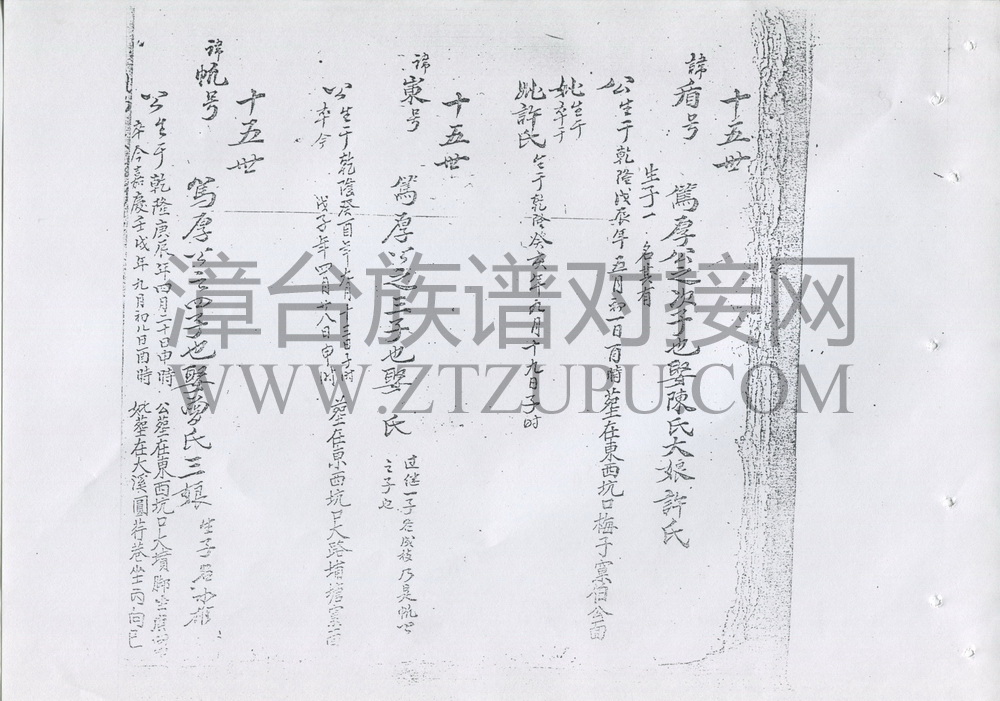 十五世
諱看号
篤厚公之次子也娶陳氏大娘許氏
生子一 名其有
公生于乾隆戊辰年五月初一日酉時葬在東西坑口梅子寮伯公面
妣生于卒于
妣許氏生于乾隆癸亥年九月十九日子时
十五世
諱東号
篤厚公之三子也娶 氏
过继一子名成枝乃是帆公之子也
公生于乾隆癸酉年 月十三日子时
卒今 戊子年四月十八日申时
葬在東西坑口大路墳塘寮面
十五世
諱帆号
篤厚公之四子也娶曾氏三娘
生子名
公生于乾隆庚辰年四月二十日申時
卒今嘉慶壬戌年九月初八日酉時
公葬在東西坑口大墳脚坐
妣葬在大溪圓 巷坐丙向巳
漳台族谱对接网
WWW.ZTZUPU.COM